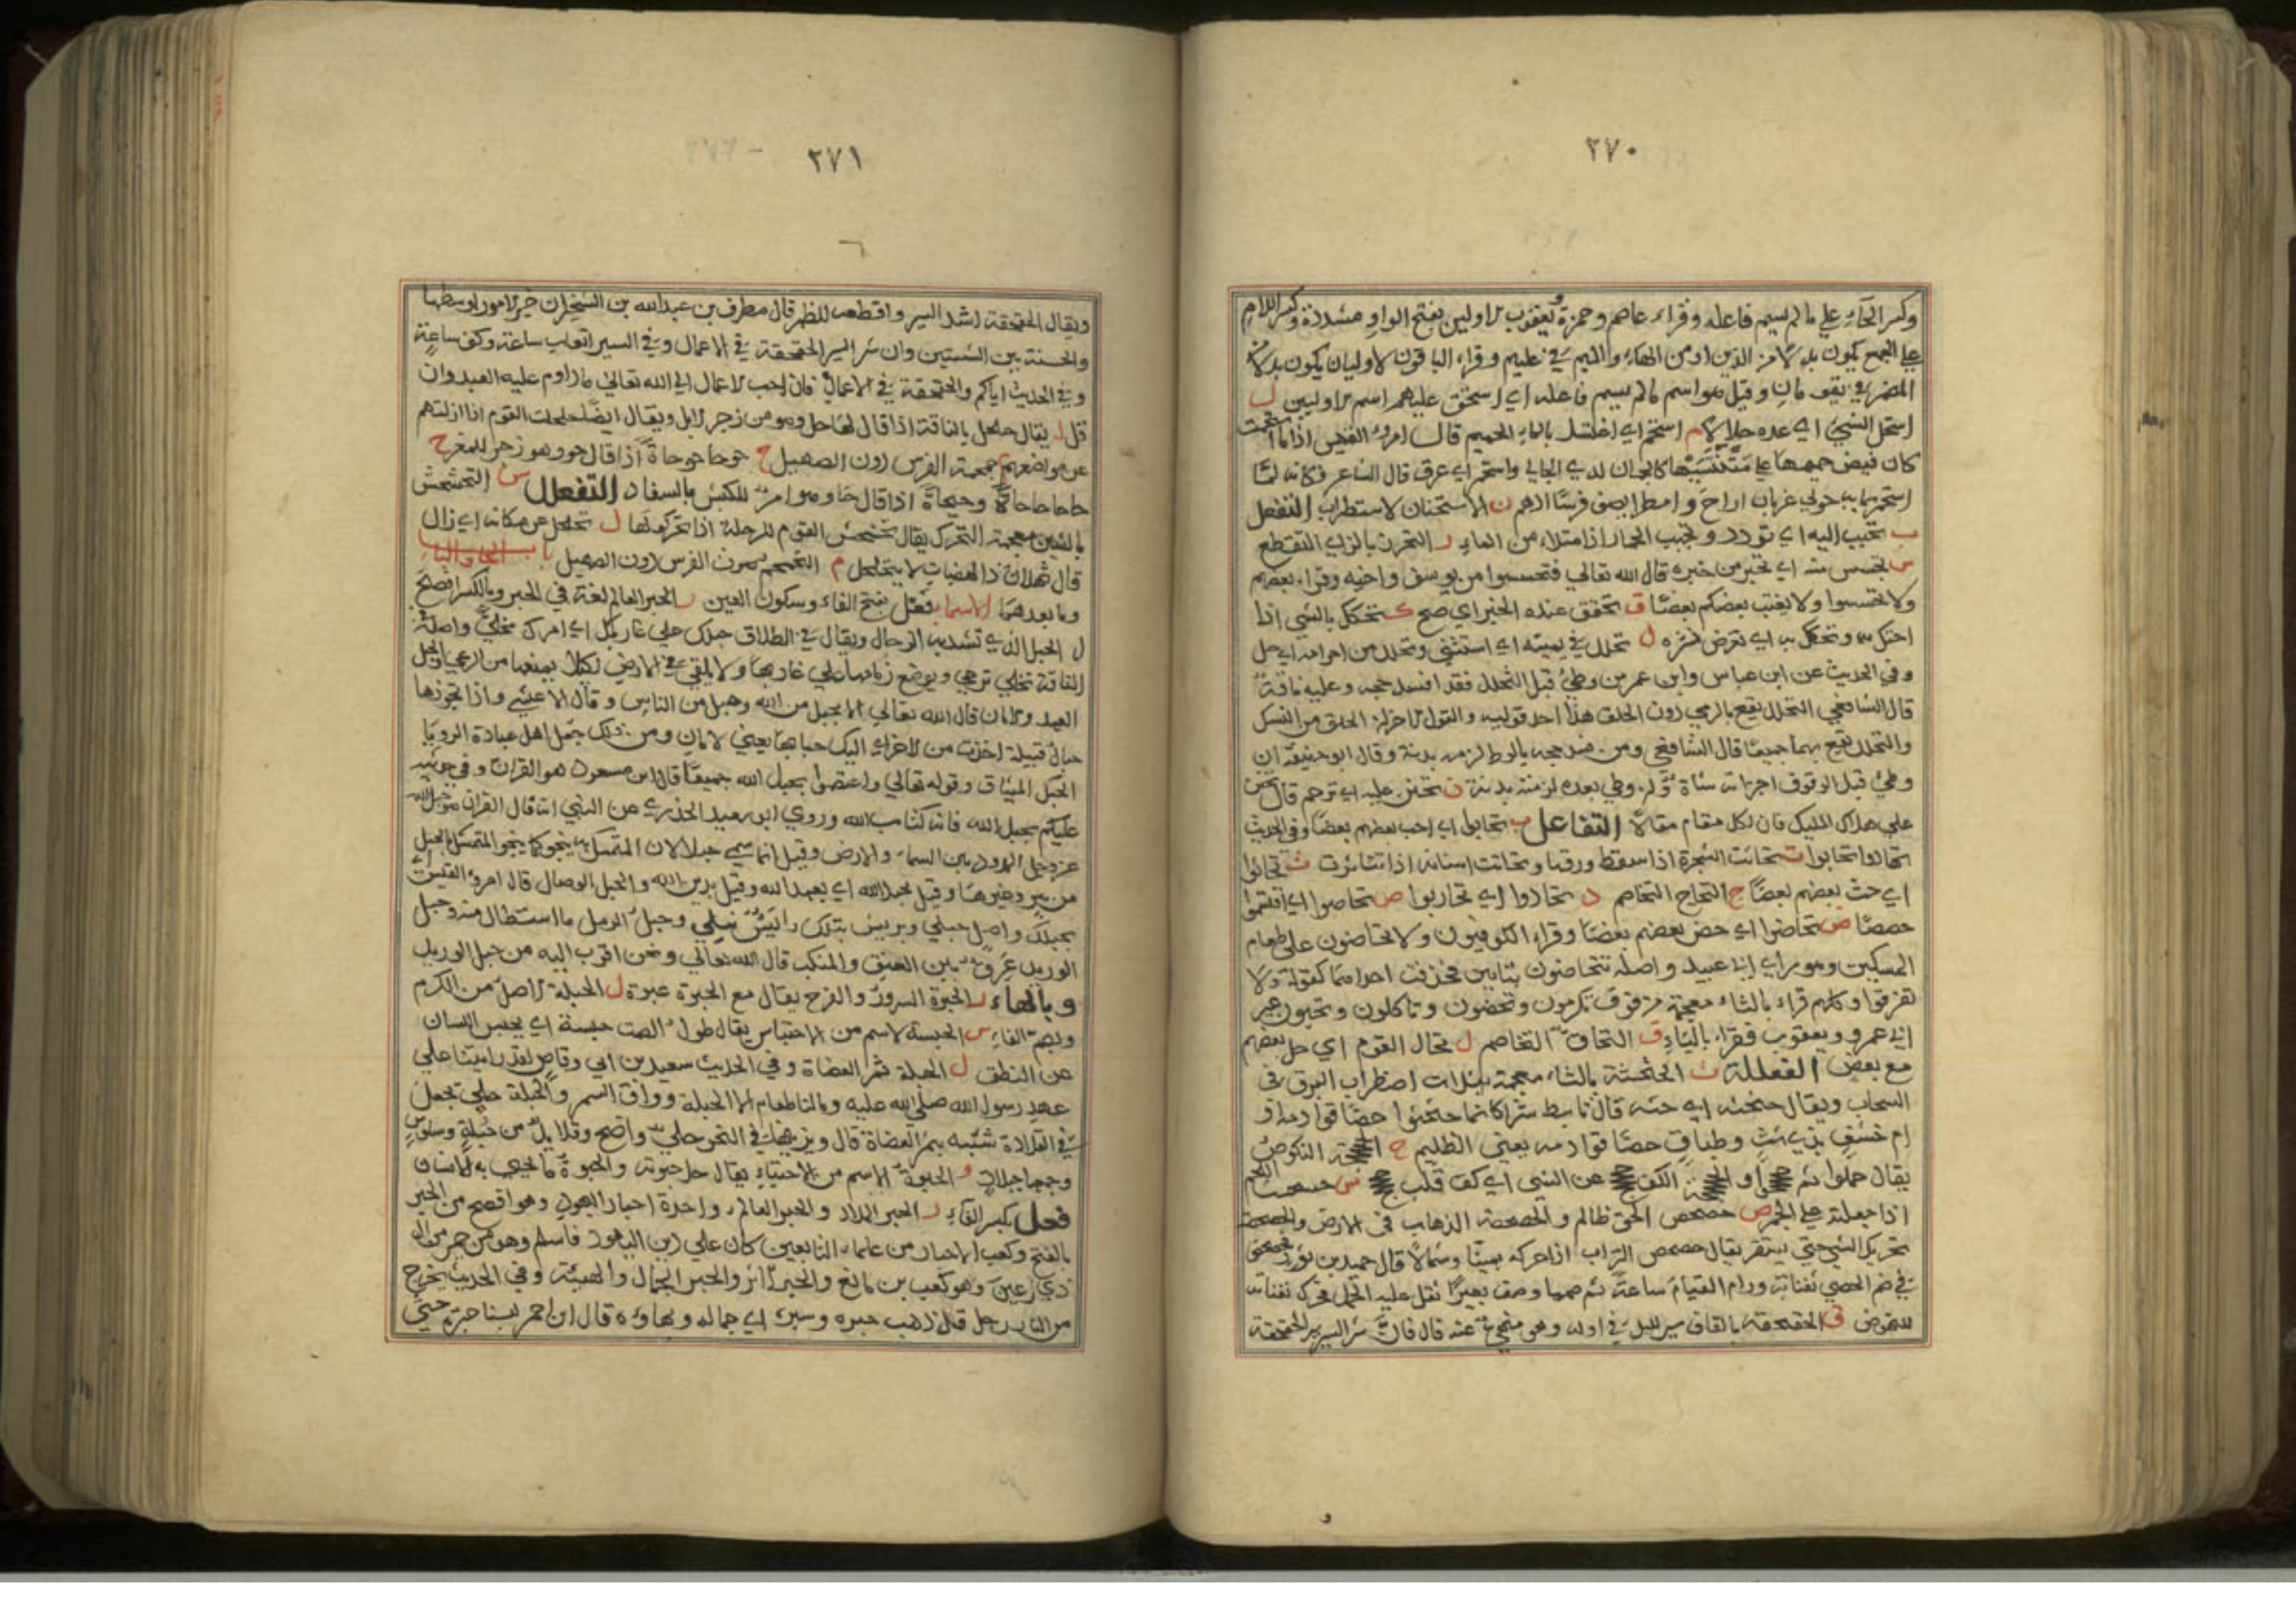 ٢٧٠
وكسر الحاء على ما لم يسم فاعله وقراء عاصم وحمزة ويعقوب الاولين بفتح الواو مشددة وكسر اللام
على الجمع يكون بدلا من الذين او من الهاء والميم في عليهم وقراء الباقون الاوليان يكون بدلا من
المضمر في يقومان وقيل هو اسم ما لم يسم فاعله اي استحق عليهم اسم الاوليين ل
استحل الشيئ اي عده حلالا م استحم اي اغتسل بالماء الحميم قال امرؤ القيس اذا ما استحمت
كان فيض حميمها على متنتيها كالجمان لدى الجالي واستحم اي عرق قال الشاعر فكانه لما
استحم بمايه حولي غربان اراح وامطرا يصف فرسا ادهم ن الاستحنان الاستطراب التفعل
ب تحبب اليه اي تودد وتحبب الحمار اذا امتلاء من الماء ر التحزز بالزاي التقطع
س تحسس منه اي تخبر من خبره قال الله تعالى فتحسسوا من يوسف واخيه وقراء بعضهم
ولا تحسسوا ولا يغتب بعضكم بعضا ق تحقق عنده الخبر اي صح ك تحكك بالشي اذا
احتك به وتحكك به اي تعرض لشره ل تحلل في يمينه اي استثنى وتحلل من احرامه اي حل
وفي الحديث عن ابن عباس وابن عمر من وطئ قبل التحلل فقد افسد حجه وعليه ناقة
قال الشافعي التحلل يقع بالرمي دون الحلق هذا احد قوليه والقول الاخر ان الحلق من النسك
والتحلل يقع بهما جميعا قال الشافعي ومن فسد حجه بالوطء لزمه بدنة وقال ابو حنيفة ان
وطئ قبل الوقوف اجزاته شاة وان وطي بعده لزمته بدنة ن تحنن عليه اي ترحم قال تحنن
علي هداك المليك فان لكل مقام مقالا التفاعل ب تحابوا اي احب بعضهم بعضا وفي الحديث
تهادوا تحابوا ت تحاتت الشجرة اذا سقط ورقها وتحاتت اسنانه اذا تناثرت ث تحاثوا
اي حث بعضهم بعضا ج التحاج التخاصم د تحادوا اي تحاربوا ص تحاصوا اي اقتسموا
حصصا ض تحاضوا اي حض بعضهم بعضا وقراء الكوفيون ولا تحاضون على طعام
المسكين وهو راي ابي عبيد واصله تتحاضون بتايين فحذفت احداهما كقوله ولا
تفرقوا وكلهم قراء بالتاء معجمة من فوق تكرمون وتحضون وتاكلون وتحبون غير
ابي عمرو ويعقوب فقراء بالياء ق التحاق التخاصم ل تحال القوم اي حل بعضهم
مع بعض الفعللة ث الحثحثة بالثاء معجمة بثلاث اضطراب البرق في
السحاب ويقال حثحثه اي حثه قال تابط شرا كانما حثحثوا حصا قوادمه او
ام خشف بذي شث وطباق حصا قوادمه يعني الظليم ج النكوص
يقال حملوا ثم الكف عن الشي اي كف قلب س
اذا جعلته على الجمر ص حصحص الحق ظالم والحصحصة الذهاب في الارض والحصحصة
تحريك الشي حتى يستقر يقال حصحص التراب اذا حركه يمينا وشمالا قال حميد بن ثور فحصحص
في صم الحصي ثفناته ورام القيام ساعة ثم صمما وصف بعيرا ثقل عليه الحمل فحرك ثفناته
للنهوض ق الحقحقة بالقاف سير الليل في اوله وهو منهي عنه قال فان شر السير سير الحقحقة
٢٧١
ويقال الحقحقة اشد السير واقطعه للظهر قال مطرف بن عبدالله بن الشخير ان خير الامور اوسطها
والحسنة بين السيئتين وان شر السير الحقحقة في الاعمال وفي السير اتعاب ساعة وكف ساعة
وفي الحديث اياكم والحقحقة في الاعمال فان احب الاعمال الى الله تعالى ما داوم عليه العبد وان
قل ل يقال حلحل بالناقة اذا قال لها حل وهو من زجر الابل ويقال ايضا حلحلت القوم اذا ازلتهم
عن مواضعهم م حمحمة الفرس دون الصهيل ح حوحا حوحاة اذا قال حوحو وهو زجر للمعز ح
حاحا حاحاة وحيحاة اذا قال حاو وهو امر للكبش بالسفاد التفعلل ش التحشحش
بالشين معجمة التحرك يقال تحشحش القوم للرحلة اذا تحركوا لها ل تحلحل عن مكانه اي زال
قال ثهلان ذا الهضبات لا يتحلحل م التحمحم صوت الفرس دون الصهيل باب الحاء والباء
وما بعدهما الاسما فعل بفتح الفاء وسكون العين ر الحبر العالم لغة في الحبر وبالكسر افصح
ل الحبل الذي تشد به الرحال ويقال في الطلاق حبلك على غاربك اي امرك مخلى واصله
الناقة تخلى ترعى ويوضع زمامها على غاربها ولا يلقى في الارض لئلا يمنعها من الرعي والحبل
العهد والامان قال الله تعالى الا بحبل من الله وحبل من الناس وقال الاعشى واذا تجوزها
حبال قبيلة اخذت من الاخرى اليك حبالها يعني الامان ومن ذلك جعل اهل عبادة الرويا
الحبل الميثاق وقوله تعالى واعتصموا بحبل الله جميعا قال ابن مسعود هو القران وفي حديثه
عليكم بحبل الله فانه كتاب الله وروى ابو سعيد الخدري عن النبي انه قال القران هو حبل الله
عز وجل الممدود بين السماء والارض وقيل انما سمي حبلا لان المتمسك به ينجو كما ينجو المتمسك بالحبل
من بير وغيرها وقيل بحبل الله اي بعهد الله وقيل بدين الله والحبل الوصال قال امرؤ القيس اني
بحبلك واصل حبلي وبريش نبلك رائش نبلي وحبل الرمل ما استطال منه وحبل
الوريد عرق بين العنق والمنكب قال الله تعالى ونحن اقرب اليه من حبل الوريد
وبالهاء ر الحبرة السرور والفرح يقال مع الحبرة عبرة ل الحبلة الاصل من الكرم
وبضم الفاء س الحبسة الاسم من الاحتباس يقال طول الصمت حبسة اي يحبس اللسان
عن النطق ل الحبلة ثمر العضاة وفي الحديث سعيد بن ابي وقاص لقد رايتنا على
عهد رسول الله صلى الله عليه وما لنا طعام الا الحبلة وورق السمر والحبلة حلي يجعل
في القلادة شبه بثمر العضاة قال ويزينها في النحر حلي واضح وقلايد من حبلة وسلوس
وجمعها حبلات و الحبوة الاسم من الاحتباء يقال حل حبوته والحبوة ما يحبى به الانسان
فعل بكسر الفاء ر الحبر المداد والحبر العالم واحدة احبار اليهود وهو افصح من الحبر
بالفتح وكعب الاحبار من علماء التابعين كان على دين اليهود فاسلم وهو من حمير من ال
ذي رعين وهو كعب بن ماتع والحبر الاثر والحبر الجمال والهيئة وفي الحديث يخرج
من النار رجل قد ذهب حبره وسبره اي جماله وبهاؤه قال ابن احمر لبسنا حبره حتى